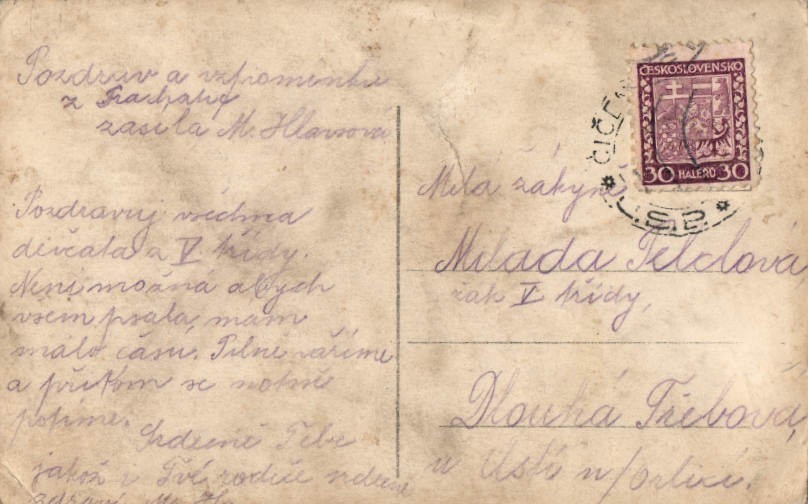 Pozdrav a vzpomínku
z Prachatic
zasílá M. Hlavsová
Pozdravuj všechna
děvčata z V třídy.
Není možná abych
všem psala, mám
málo času. Pilně vaříme
a přitom se notně
potíme.
Srdečně Tebe
jakož i Tvé rodiče srdečně
zdraví M.
ČESKOSLOVENSKO
30 HALÉŘŮ 30
Č.S.P.
Milá žákyně
Milada Felclová
žák V třídy,
Dlouhá Třebová,
u Ústí n/Orlicí.